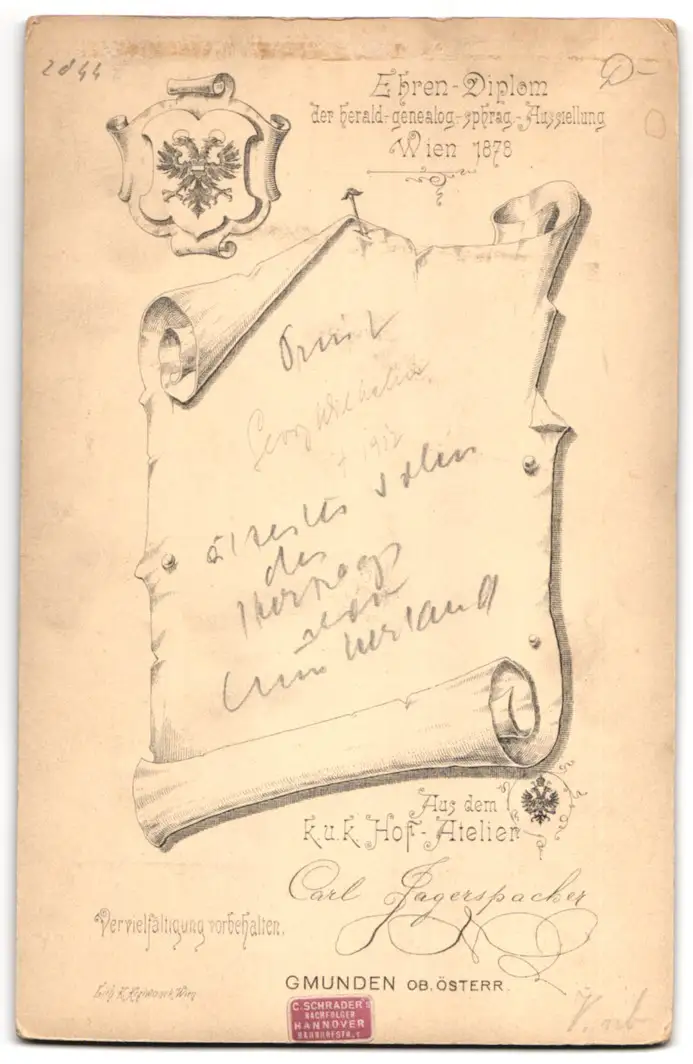 2844
Ehren-Diplom
der herald.-genealog.-sphrag.-Ausstellung
Wien 1878
Prinz
Georg Wilhelm
† 1912
ältester Sohn
des
Herzogs
von
Cumberland
Aus dem
k.u.k. Hof-Atelier
Carl Jagerspacher
Vervielfältigung vorbehalten.
GMUNDEN OB. ÖSTERR.
C. SCHRADER'S
NACHFOLGER
HANNOVER